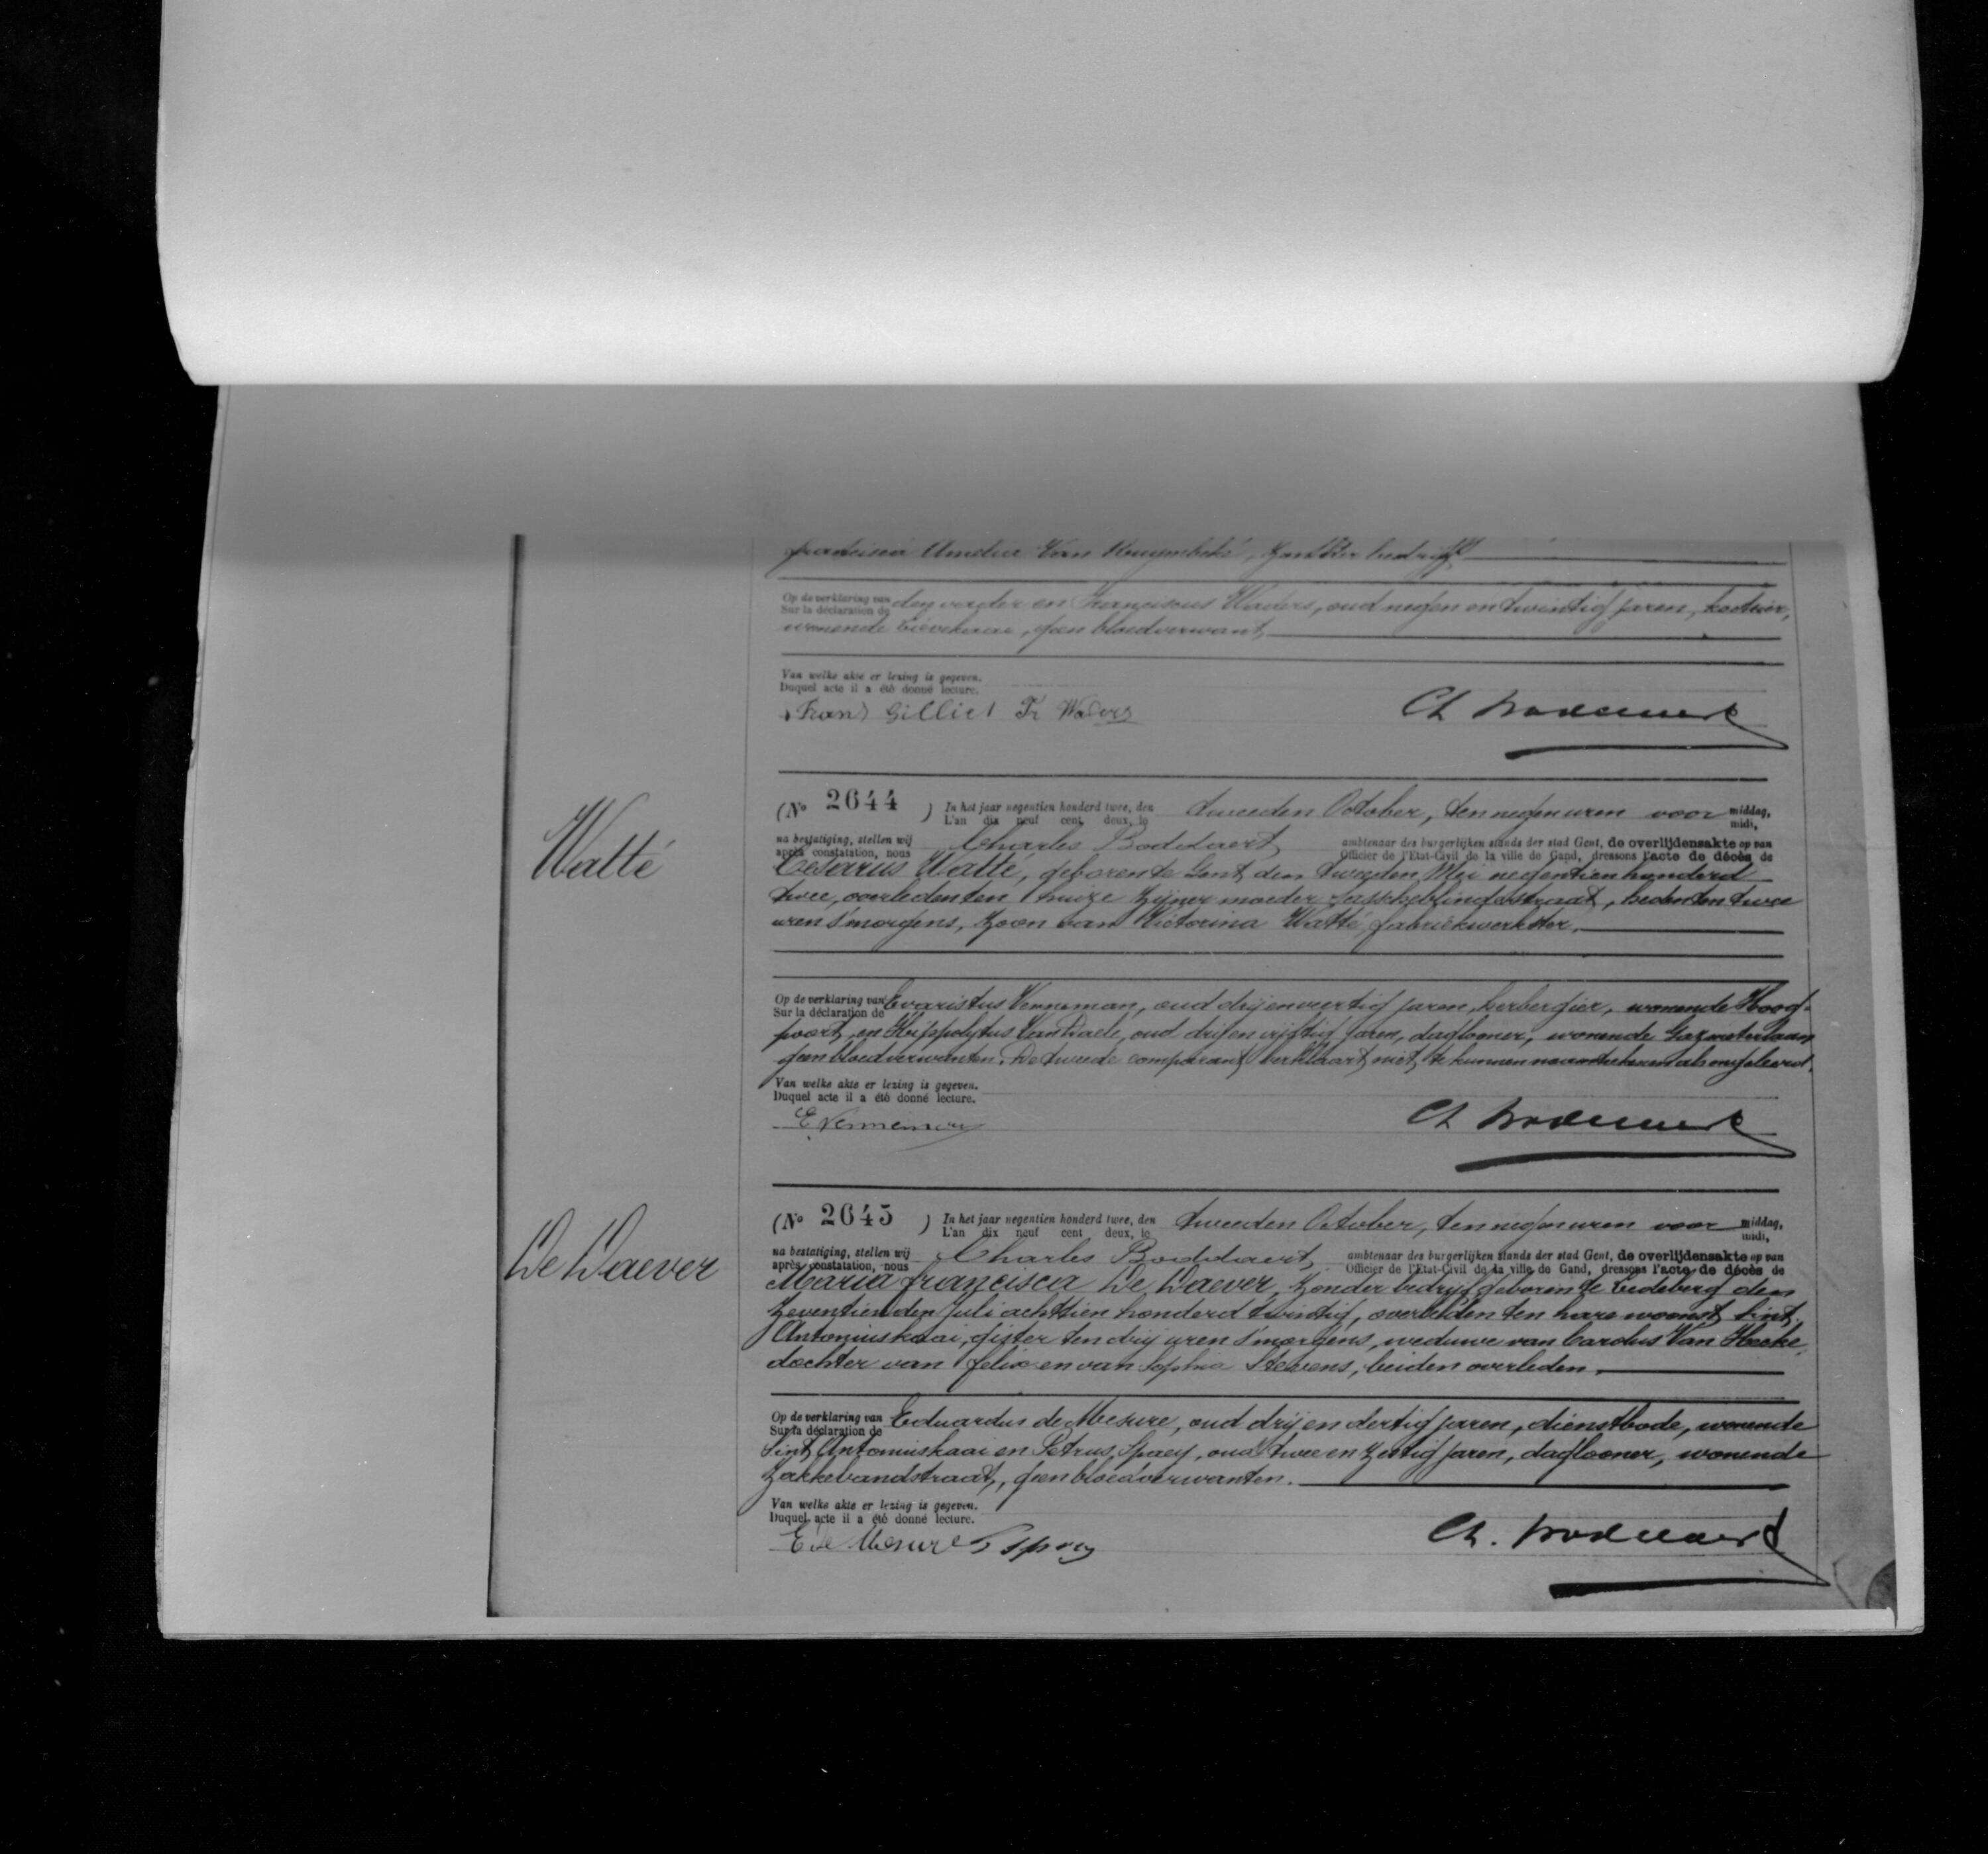 francisca Amelia Van Kuymbeke, zonder bedrijf
Op de verklaring van den vader en Franciscus Waders, oud negen en twintig jaren,
Sur la déclaration de
wonende Lievekaai, geen bloedverwant
Van welke akte er lezing is gegeven.
Duquel acte il a été donné lecture.
Frans Gilliet Fr Waders Ch Boddaert
Watté
(No 2644 ) In het jaar negentien honderd twee, den tweeden October, ten negen uren voor middag,
L'an dix neuf cent deux, le midi,
na bestatiging, stellen wij Charles Boddaert ambtenaar des burgerlijken stands der stad Gent, de overlijdensakte op van
après constatation, nous Officier de l'Etat-Civil de la ville de Gand, dressons l'acte de décès de
Cesarius Watté, geboren te Gent, den tweeden Mei negentien honderd
twee, overleden ten huize zijner moeder heden ten twee
uren s'morgens, zoon van Victorina Watté, fabriekwerkster.
Op de verklaring van Evaristus Venneman, oud drij en veertig jaren, herbergier, wonende Hoog-
Sur la déclaration de
poort, en Hippolytus Van Daele, oud drij en vijftig jaren, daglooner, wonende Gazmeterlaan
geen bloedverwanten. De tweede comparant verklaart niet te kunnen naamteekenen als ongeleerd.
Van welke akte er lezing is gegeven.
Duquel acte il a été donné lecture.
E Venneman Ch Boddaert
De Daever
(No 2645 ) In het jaar negentien honderd twee, den tweeden October, ten negen uren voor middag,
L'an dix neuf cent deux, le midi,
na bestatiging, stellen wij Charles Boddaert, ambtenaar des burgerlijken stands der stad Gent, de overlijdensakte op van
après constatation, nous Officier de l'Etat-Civil de la ville de Gand, dressons l'acte de décès de
Maria francisca De Daever, zonder bedrijf, geboren te Ledeberg den
zeventienden Juli achttien honderd twintig, overleden ten hare woonst, Sint
Antoniuskaai, gister ten drij uren s'morgens, weduwe van Carolus Van Hecke,
dochter van felix en van Sophia Stevens, beiden overleden.
Op de verklaring van Eduardus de Mesure, oud drij en dertig jaren, dienstbode, wonende
Sur la déclaration de
Sint Antoniuskaai en Petrus Spaey, oud twee en zestig jaren, daglooner, wonende
Zakkebandstraat, geen bloedverwanten.
Van welke akte er lezing is gegeven.
Duquel acte il a été donné lecture.
E De Mesure P Spaey Ch. Boddaert